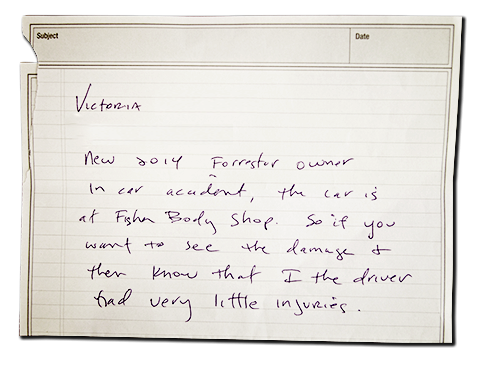 Subject
Date
Victoria
New 2014 Forrestor owner
in car accident, the car is
at Fisher Body Shop. So if you
want to see the damage &
then know that I the driver
had very little injuries.